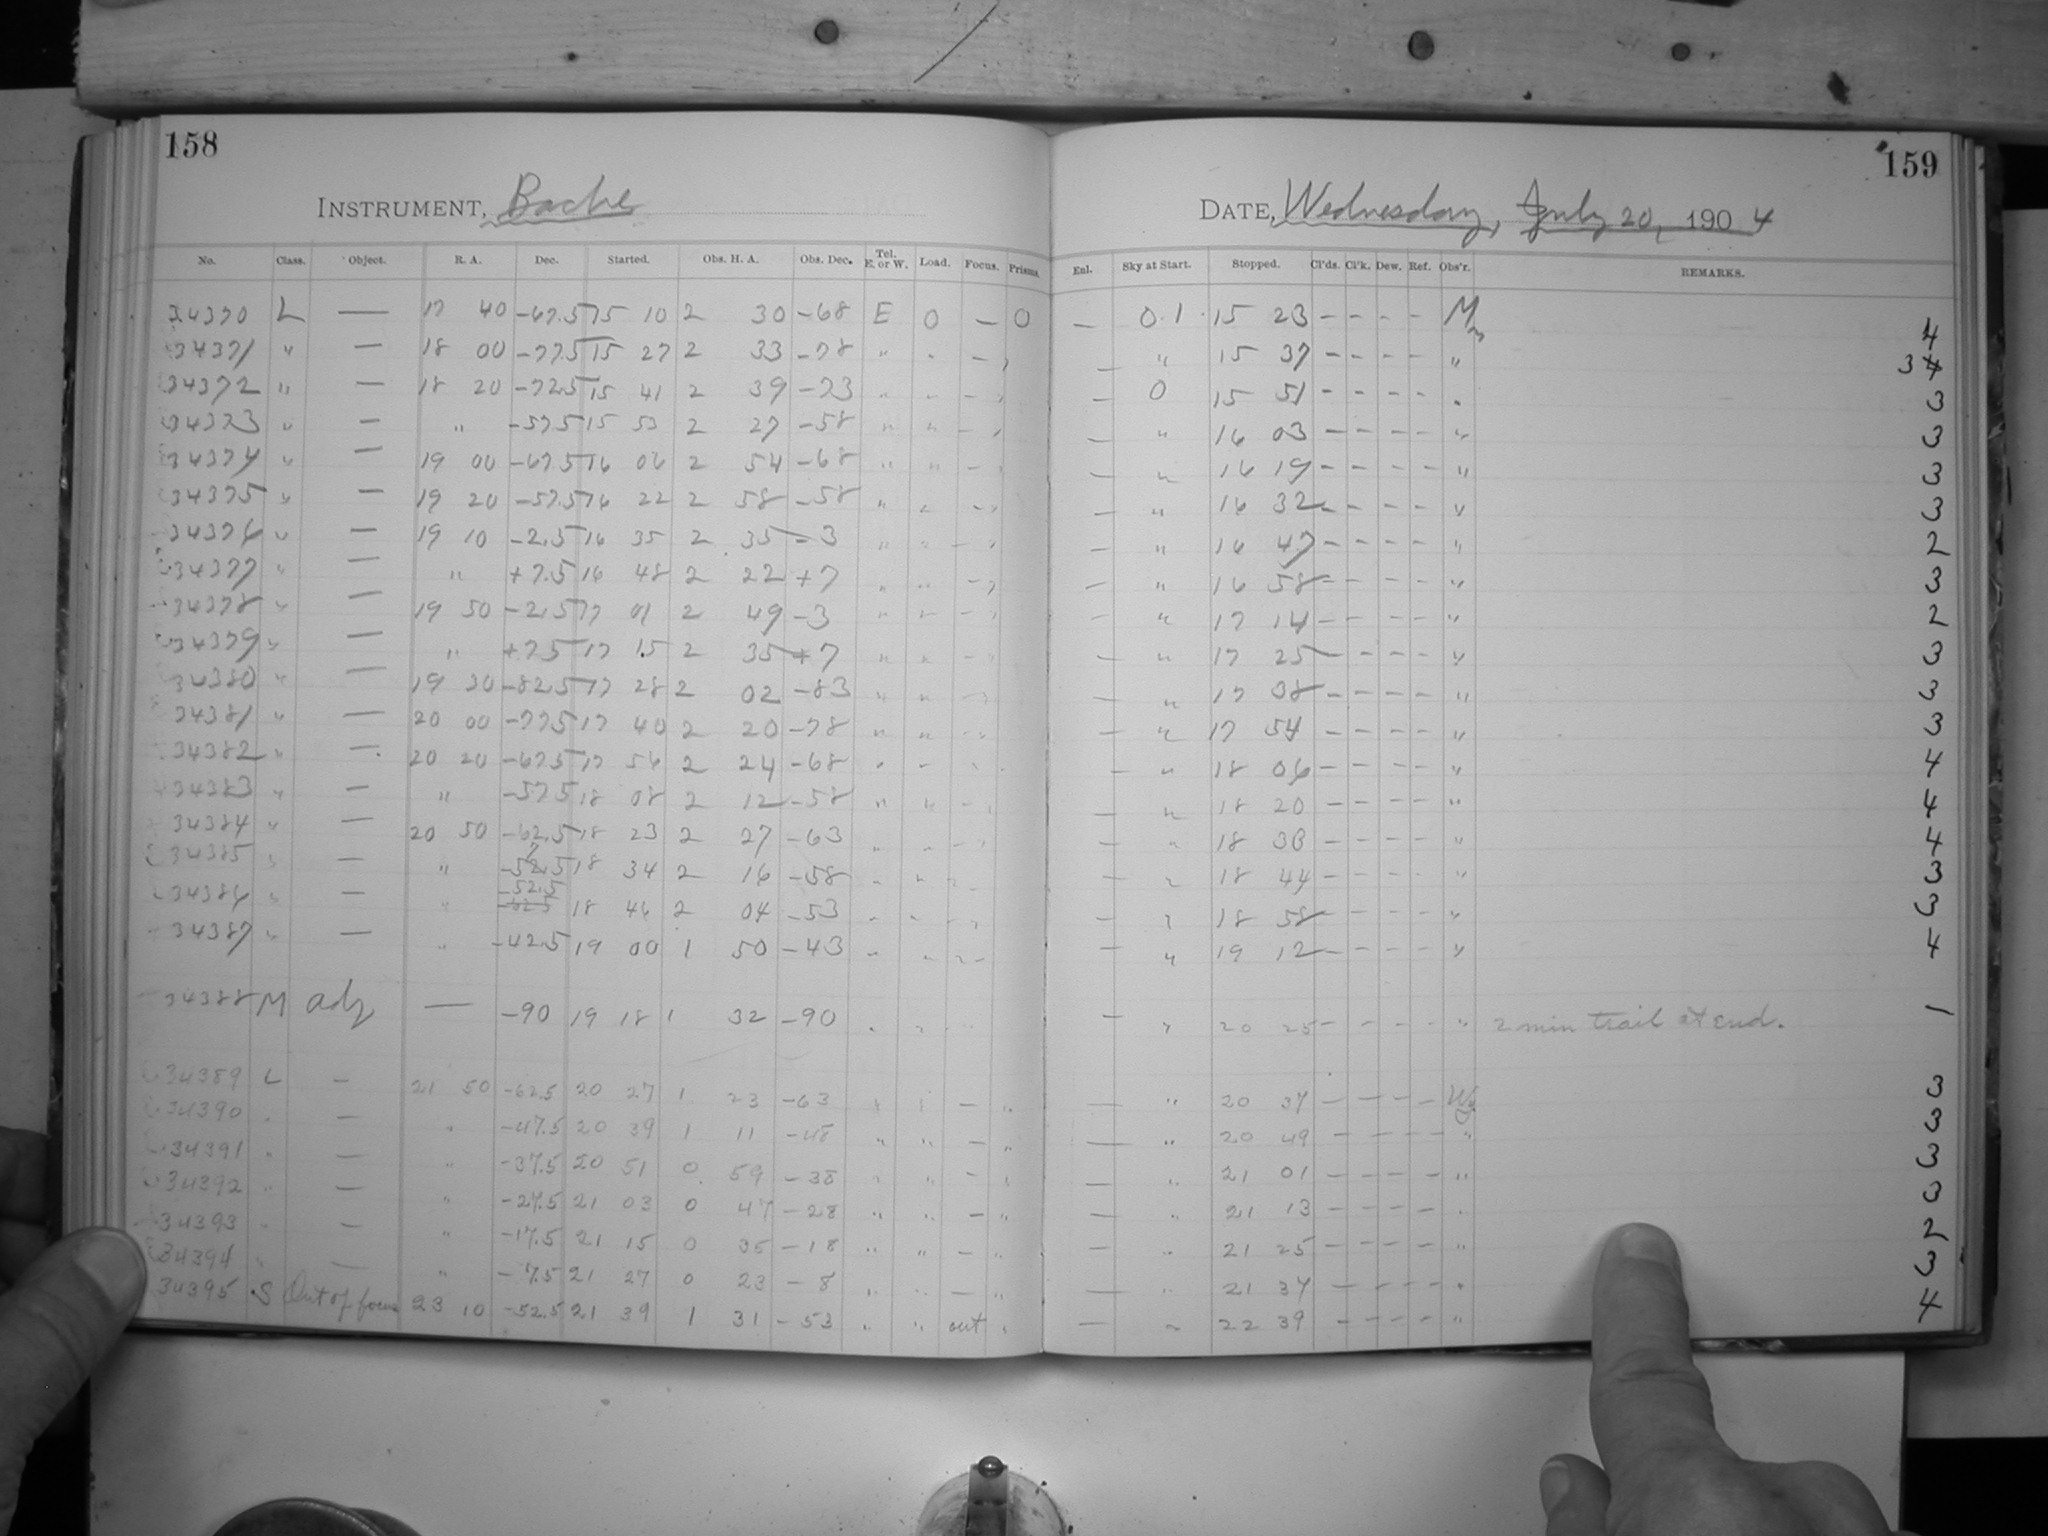 158
INSTRUMENT, Bache
No. Class. Object. R. A. Dec. Started. Obs. H. A. Obs. Dec. Tel. E. or W. Load. Focus. Prisms.
34370 L — 17 40 -67.5 15 10 2 30 -68 E 0 — 0
34371 " — 18 00 -77.5 15 27 2 33 -78 " " - "
34372 " — 18 20 -72.5 15 41 2 39 -73 " " - "
34373 " — " -57.5 15 53 2 27 -58 " " - "
34374 " — 19 00 -67.5 16 06 2 54 -68 " " - "
34375 " — 19 20 -57.5 16 22 2 58 -58 " " - "
34376 " — 19 10 -2.5 16 35 2 35 -3 " " - "
34377 " — " +7.5 16 48 2 22 +7 " " - "
34378 " — 19 50 -2.5 17 01 2 49 -3 " " - "
34379 " — " +7.5 17 15 2 35 +7 " " - "
34380 " — 19 30 -82.5 17 28 2 02 -83 " " - "
34381 " — 20 00 -77.5 17 40 2 20 -78 " " - "
34382 " — 20 20 -67.5 17 56 2 24 -68 " " - "
34383 " — " -57.5 18 08 2 12 -58 " " - "
34384 " — 20 50 -62.5 18 23 2 27 -63 " " - "
34385 " — " -57.5 18 34 2 16 -58 " " - "
34386 " — " -52.5 18 46 2 04 -53 " " - "
34387 " — " -42.5 19 00 1 50 -43 " " - "
34388 M adj — -90 19 18 1 32 -90 " "
34389 L — 21 50 -62.5 20 27 1 23 -63 " " — "
34390 " — " -47.5 20 39 1 11 -48 " " — "
34391 " — " -37.5 20 51 0 59 -38 " " — "
34392 " — " -27.5 21 03 0 47 -28 " " — "
34393 " — " -17.5 21 15 0 35 -18 " " — "
34394 " — " -7.5 21 27 0 23 -8 " " — "
34395 S Out of focus 23 10 -52.5 21 39 1 31 -53 " " out "
159
DATE, Wednesday, July 20, 1904
Enl. Sky at Start. Stopped. Cl'ds. Cl'k. Dew. Ref. Obs'r. REMARKS.
— 0.1 15 23 - - - - M 4
— " 15 37 - - - - " 3
— 0 15 51 - - - - " 3
— " 16 03 - - - - " 3
— " 16 19 - - - - " 3
— " 16 32 - - - - " 3
— " 16 47 - - - - " 2
— " 16 58 - - - - " 3
— " 17 14 - - - - " 2
— " 17 25 - - - - " 3
— " 17 38 - - - - " 3
— " 17 54 - - - - " 3
— " 18 06 - - - - " 4
— " 18 20 - - - - " 4
— " 18 33 - - - - " 4
— " 18 44 - - - - " 3
— " 18 58 - - - - " 3
— " 19 12 - - - - " 4
— " 20 25 - - - - " 2 min trail at end. 1
— " 20 37 - - - - 3
— " 20 49 - - - - " 3
— " 21 01 - - - - " 3
— " 21 13 - - - - " 3
— " 21 25 - - - - " 2
— " 21 37 - - - - " 3
— " 22 39 - - - - " 4